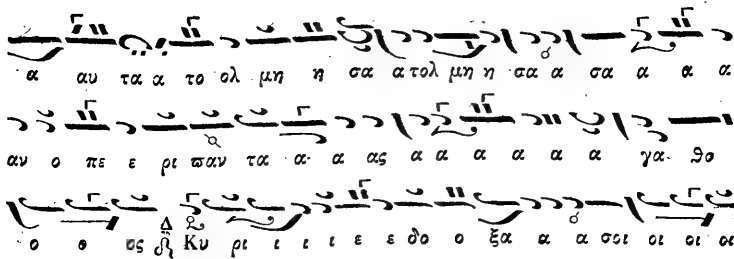 α αυ τα α το ολ μη η σα α τολ μη η σα α σα α α α
αν ο πε ε ρι παν τα α α ας α α α α α α γα θο
ο ο ος Δ Κυ ρι ι ι ι ε ε δο ο ξα α α σοι οι οι οι